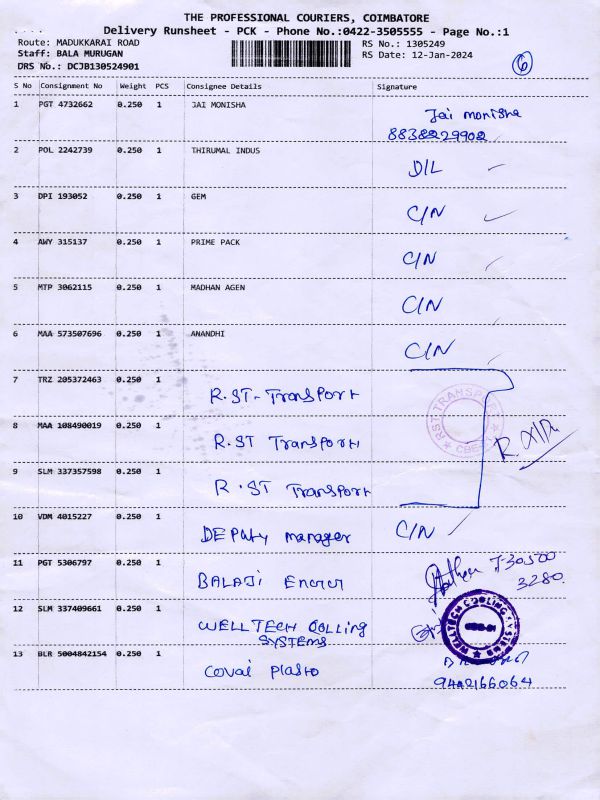 THE PROFESSIONAL COURIERS, COIMBATORE
Delivery Runsheet - PCK - Phone No.:0422-3505555 - Page No.:1
Route: MADUKKARAI ROAD
RS No.: 1305249
Staff: BALA MURUGAN
RS Date: 12-Jan-2024
DRS No.: DCJB130524901
6
S No Consignment No Weight PCS Consignee Details Signature
1 PGT 4732662 0.250 1 JAI MONISHA Jai monisha
8838229902
2 POL 2242739 0.250 1 THIRUMAL INDUS D/L
3 DPI 193052 0.250 1 GEM C/N
4 AWY 315137 0.250 1 PRIME PACK C/N
5 MTP 3062115 0.250 1 MADHAN AGEN C/N
6 MAA 573507696 0.250 1 ANANDHI C/N
7 TRZ 205372463 0.250 1 R.ST-Transport
RST TRANSPORT
8 MAA 108490019 0.250 1 R.ST Transport
9 SLM 337357598 0.250 1 R.ST Transport
10 VDM 4015227 0.250 1 DEPUty manager C/N
11 PGT 5306797 0.250 1 BALAJI
3280
12 SLM 337409661 0.250 1 WELLTECH COLLING
SYSTEMS
WELLTECH COOLING SYSTEMS
13 BLR 5004842154 0.250 1 Covai Plasto
9442166064